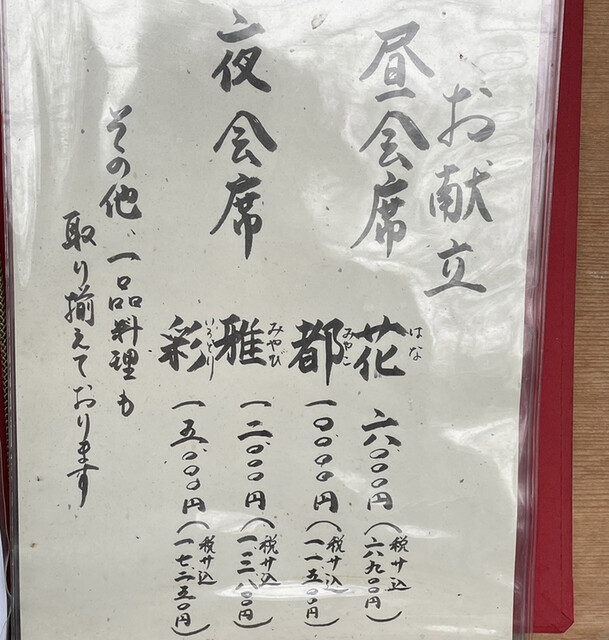 お献立
昼会席
花 はな 六〇〇〇円（税サ込 六九〇〇円）
都 みやこ 一〇〇〇〇円（税サ込 一一五〇〇円）
夜会席
雅 みやび 一二〇〇〇円（税サ込 一三八〇〇円）
彩 いろどり 一五〇〇〇円（税サ込 一七二五〇円）
その他、一品料理も
取り揃えております